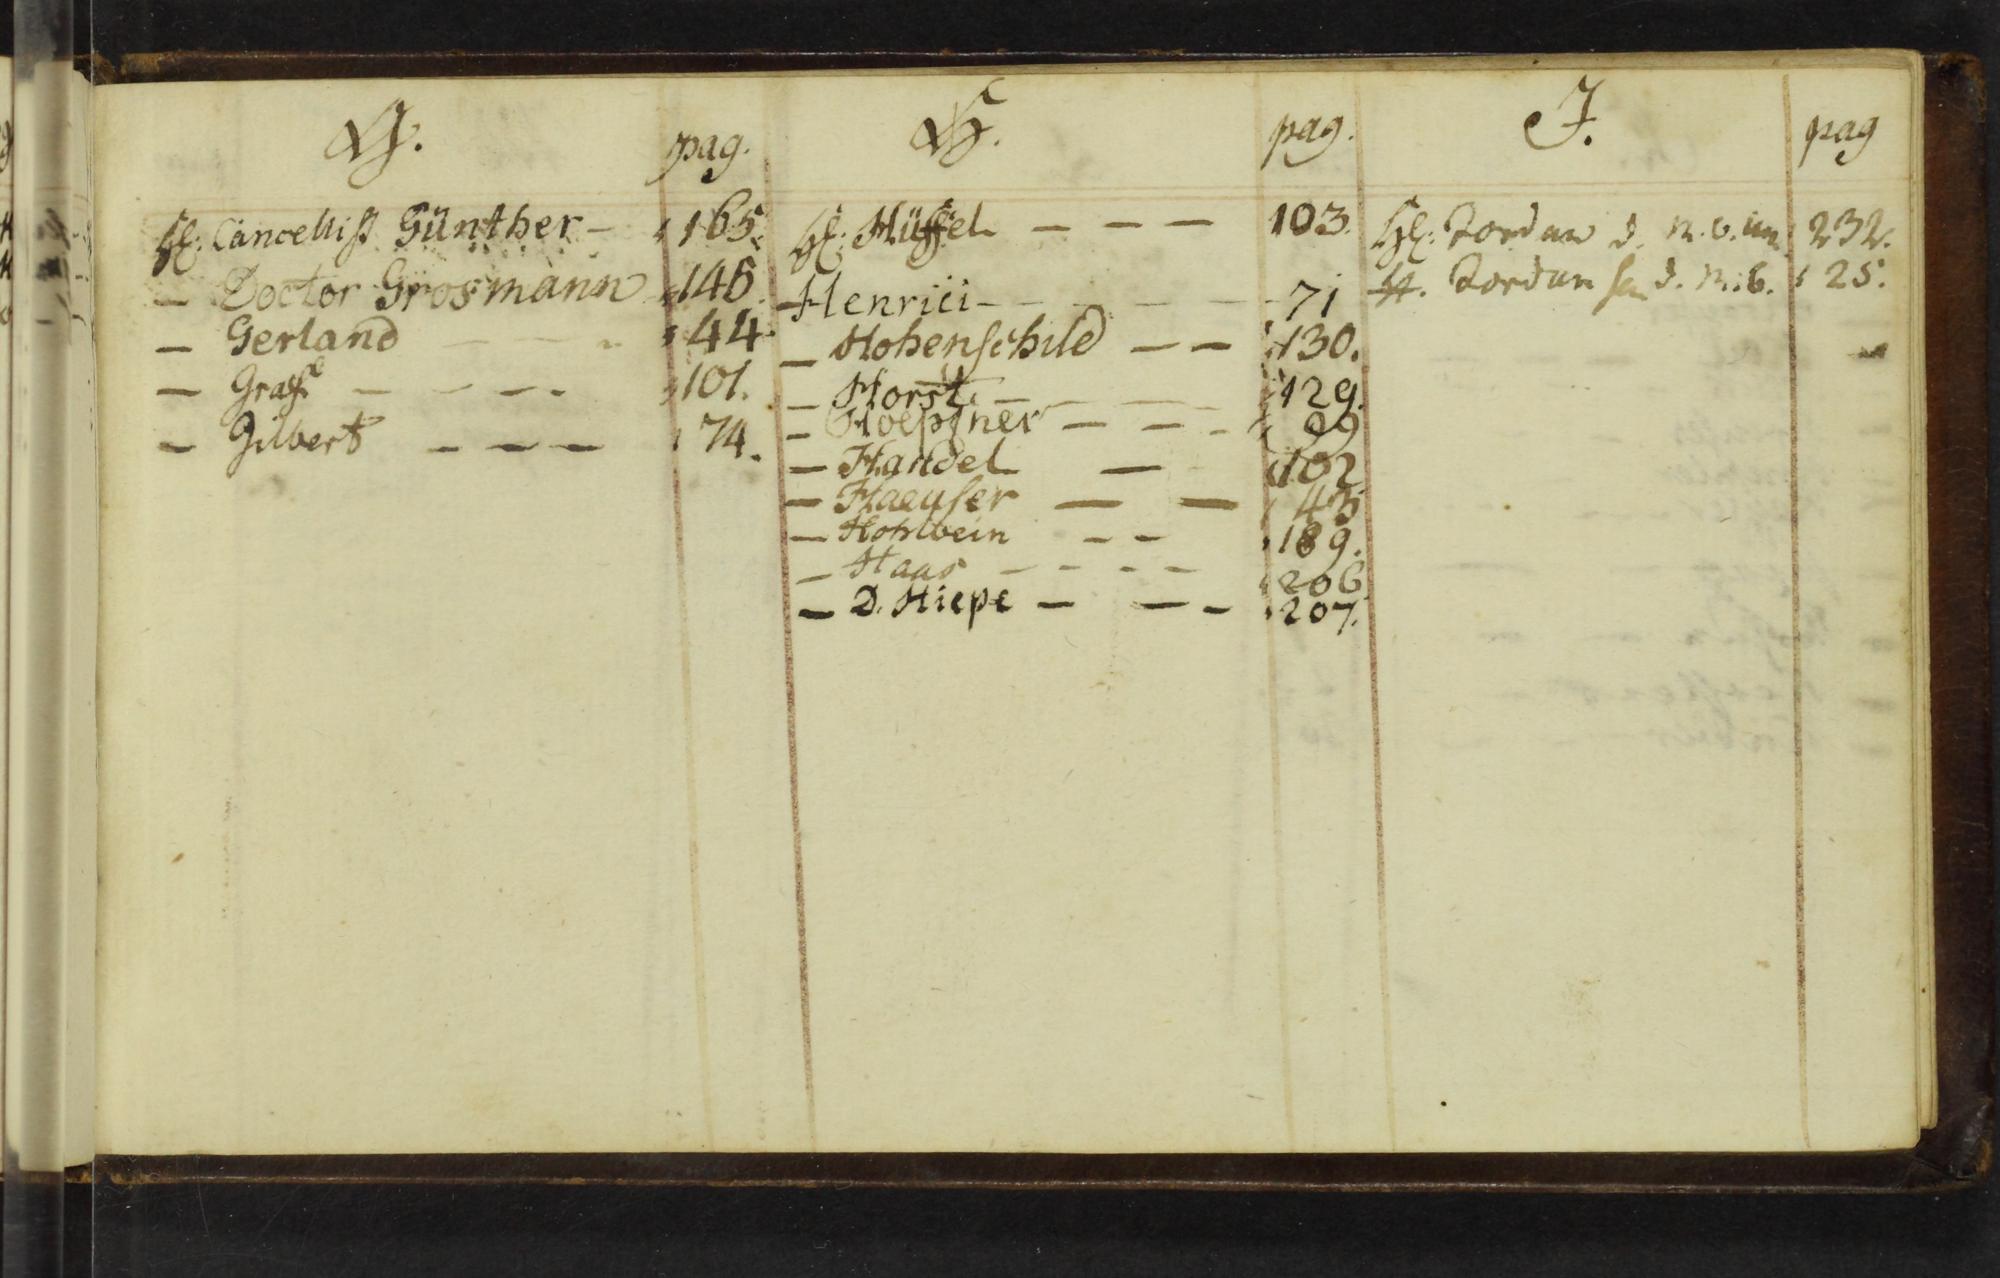 G. pag.
Hl: Cancellist Günther — 165.
— Doctor Grosmann 146.
— Gerland — — - 44.
— Graff — — — - 101.
— Gilbert — — — 74.
H. pag.
Hl: Hüffel — — — — 103.
— Henrici — — — — — 71
— Hohenschild — — 130.
— Horst. — — — 129.
— Hoepfner — — - 99
— Handel — 102.
— Haeuser — — 43
— Hohlwein - — 189.
— Haas — - - - — 206.
— D. Hiepe — — - 207.
I. pag
Hl: Jordan d. R. B. 232.
H. Jordan sen d. R. B. 25.